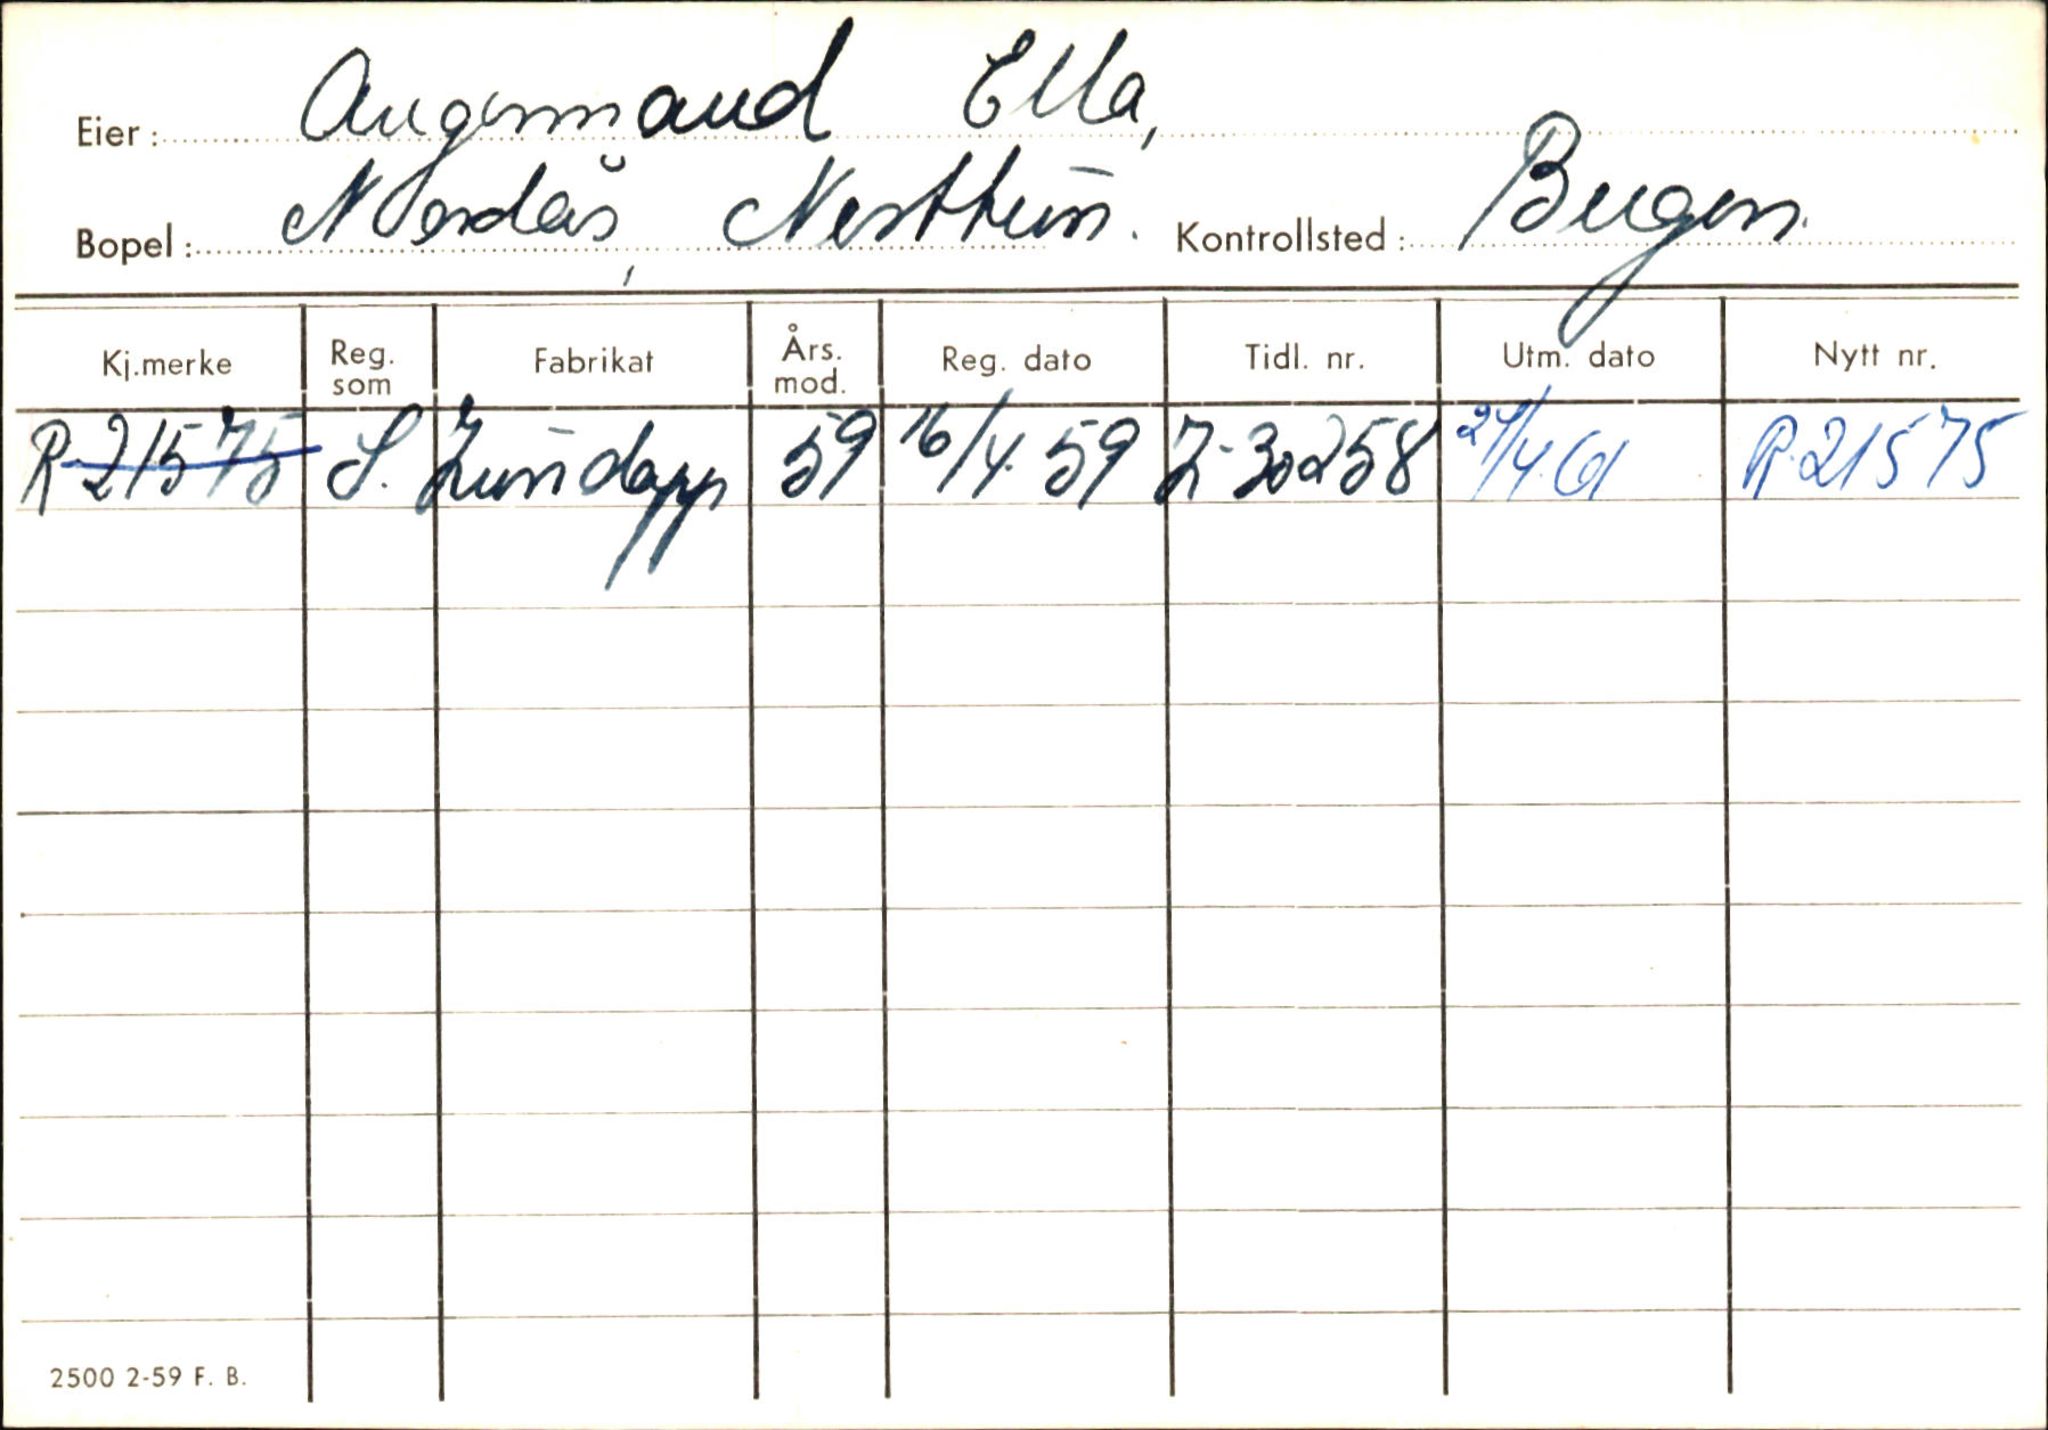 Eier: Augermaud Ella,
Bopel: Nordås, Nesttun. Kontrollsted: Bergen.
Kj.merke Reg. som Fabrikat Års. mod. Reg. dato Tidl. nr. Utm. dato Nytt nr.
R-21575 S. Zundapp 59 16/4.59 Z-30258 24/4.61 R-21575
2500 2-59 F. B.